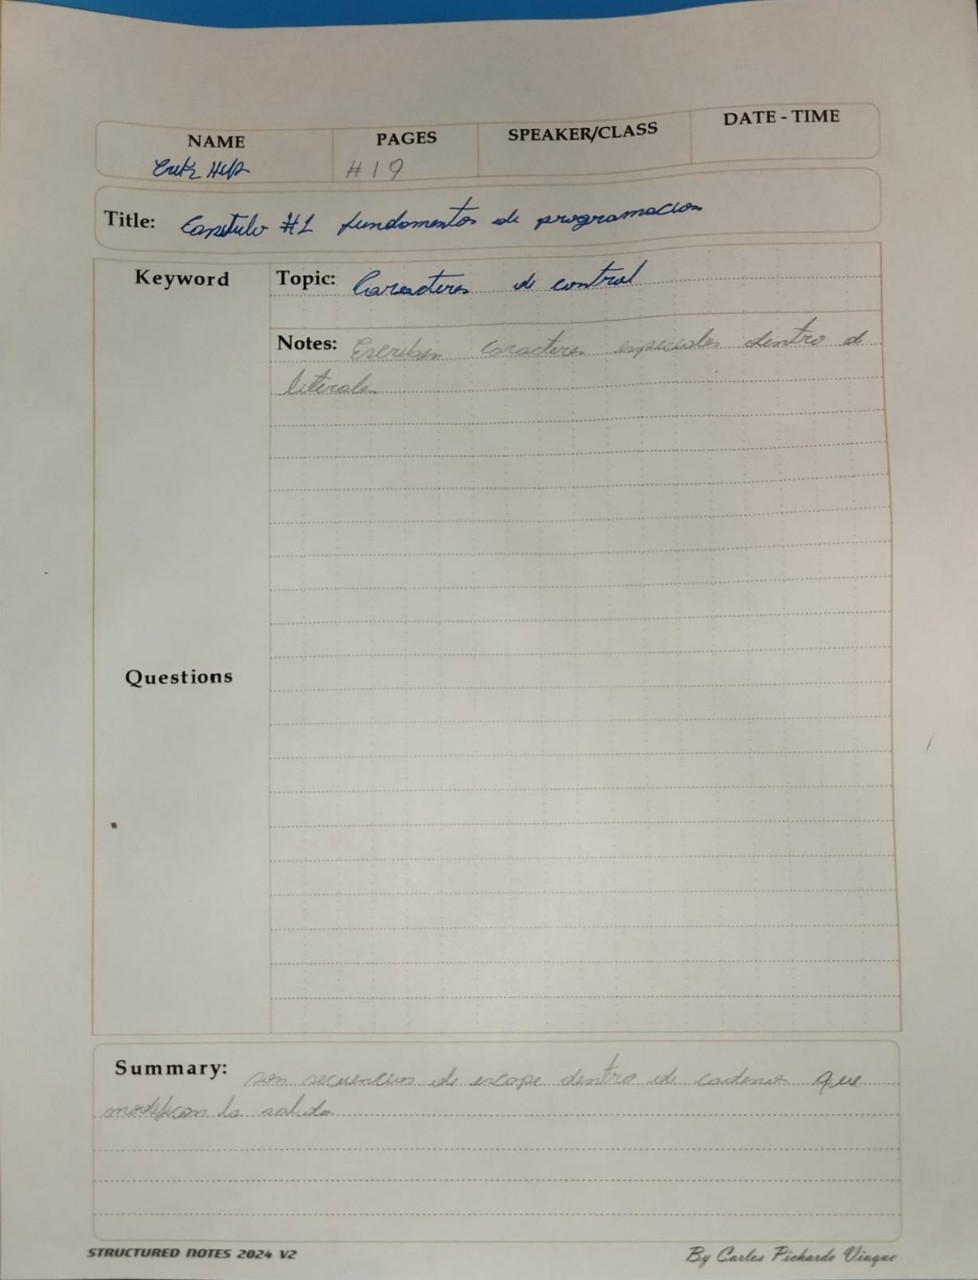 NAME PAGES SPEAKER/CLASS DATE - TIME
Erik #19
Title: Capitulo #1 fundamentos de programacion
Keyword Topic: Caracteres de control
Notes: Escriben caracteres especiales dentro de
literales
Questions
Summary: son secuencias de escape dentro de cadenas que
modifican la salida
STRUCTURED NOTES 2024 V2 By Carlos Pichardo Viuque